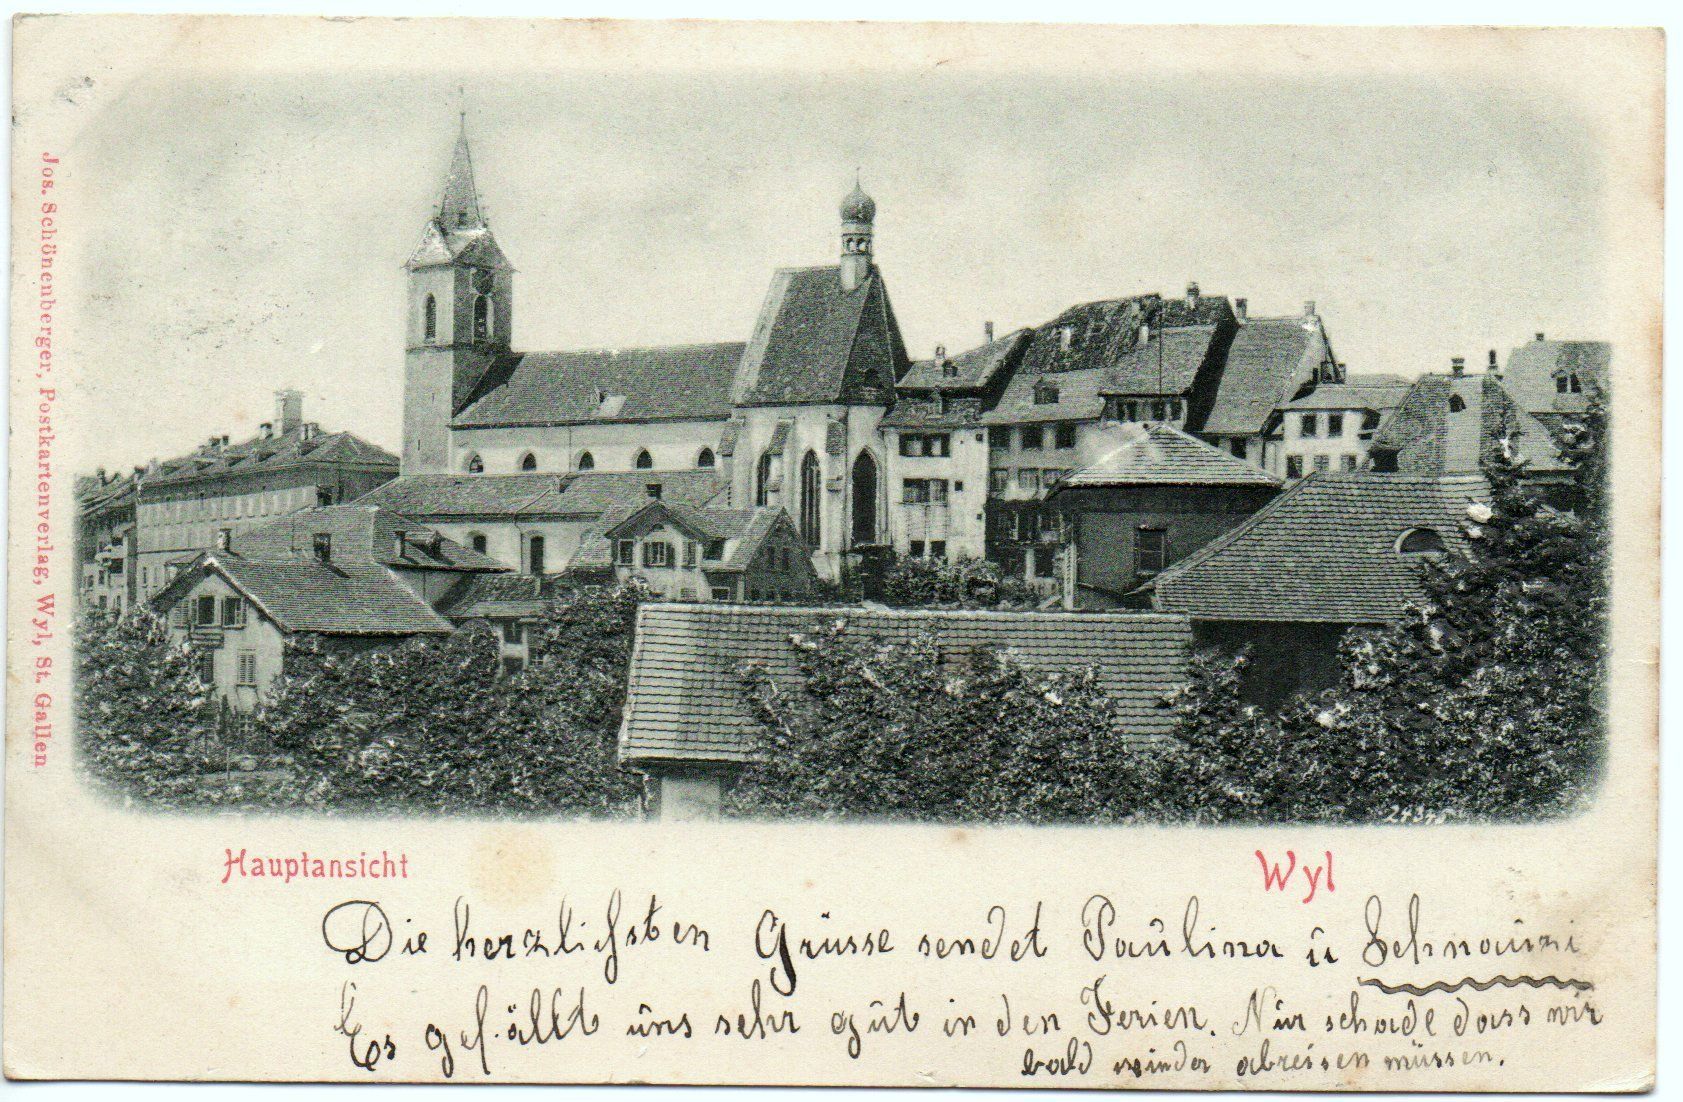 Jos. Schönenberger, Postkartenverlag, Wyl, St. Gallen
24345
Hauptansicht
Wyl
Die herzlichsten Grüsse sendet Paulina u Schnauzi
Es gefällt uns sehr gut in den Ferien. Nur schade dass wir
bald wieder abreisen müssen.